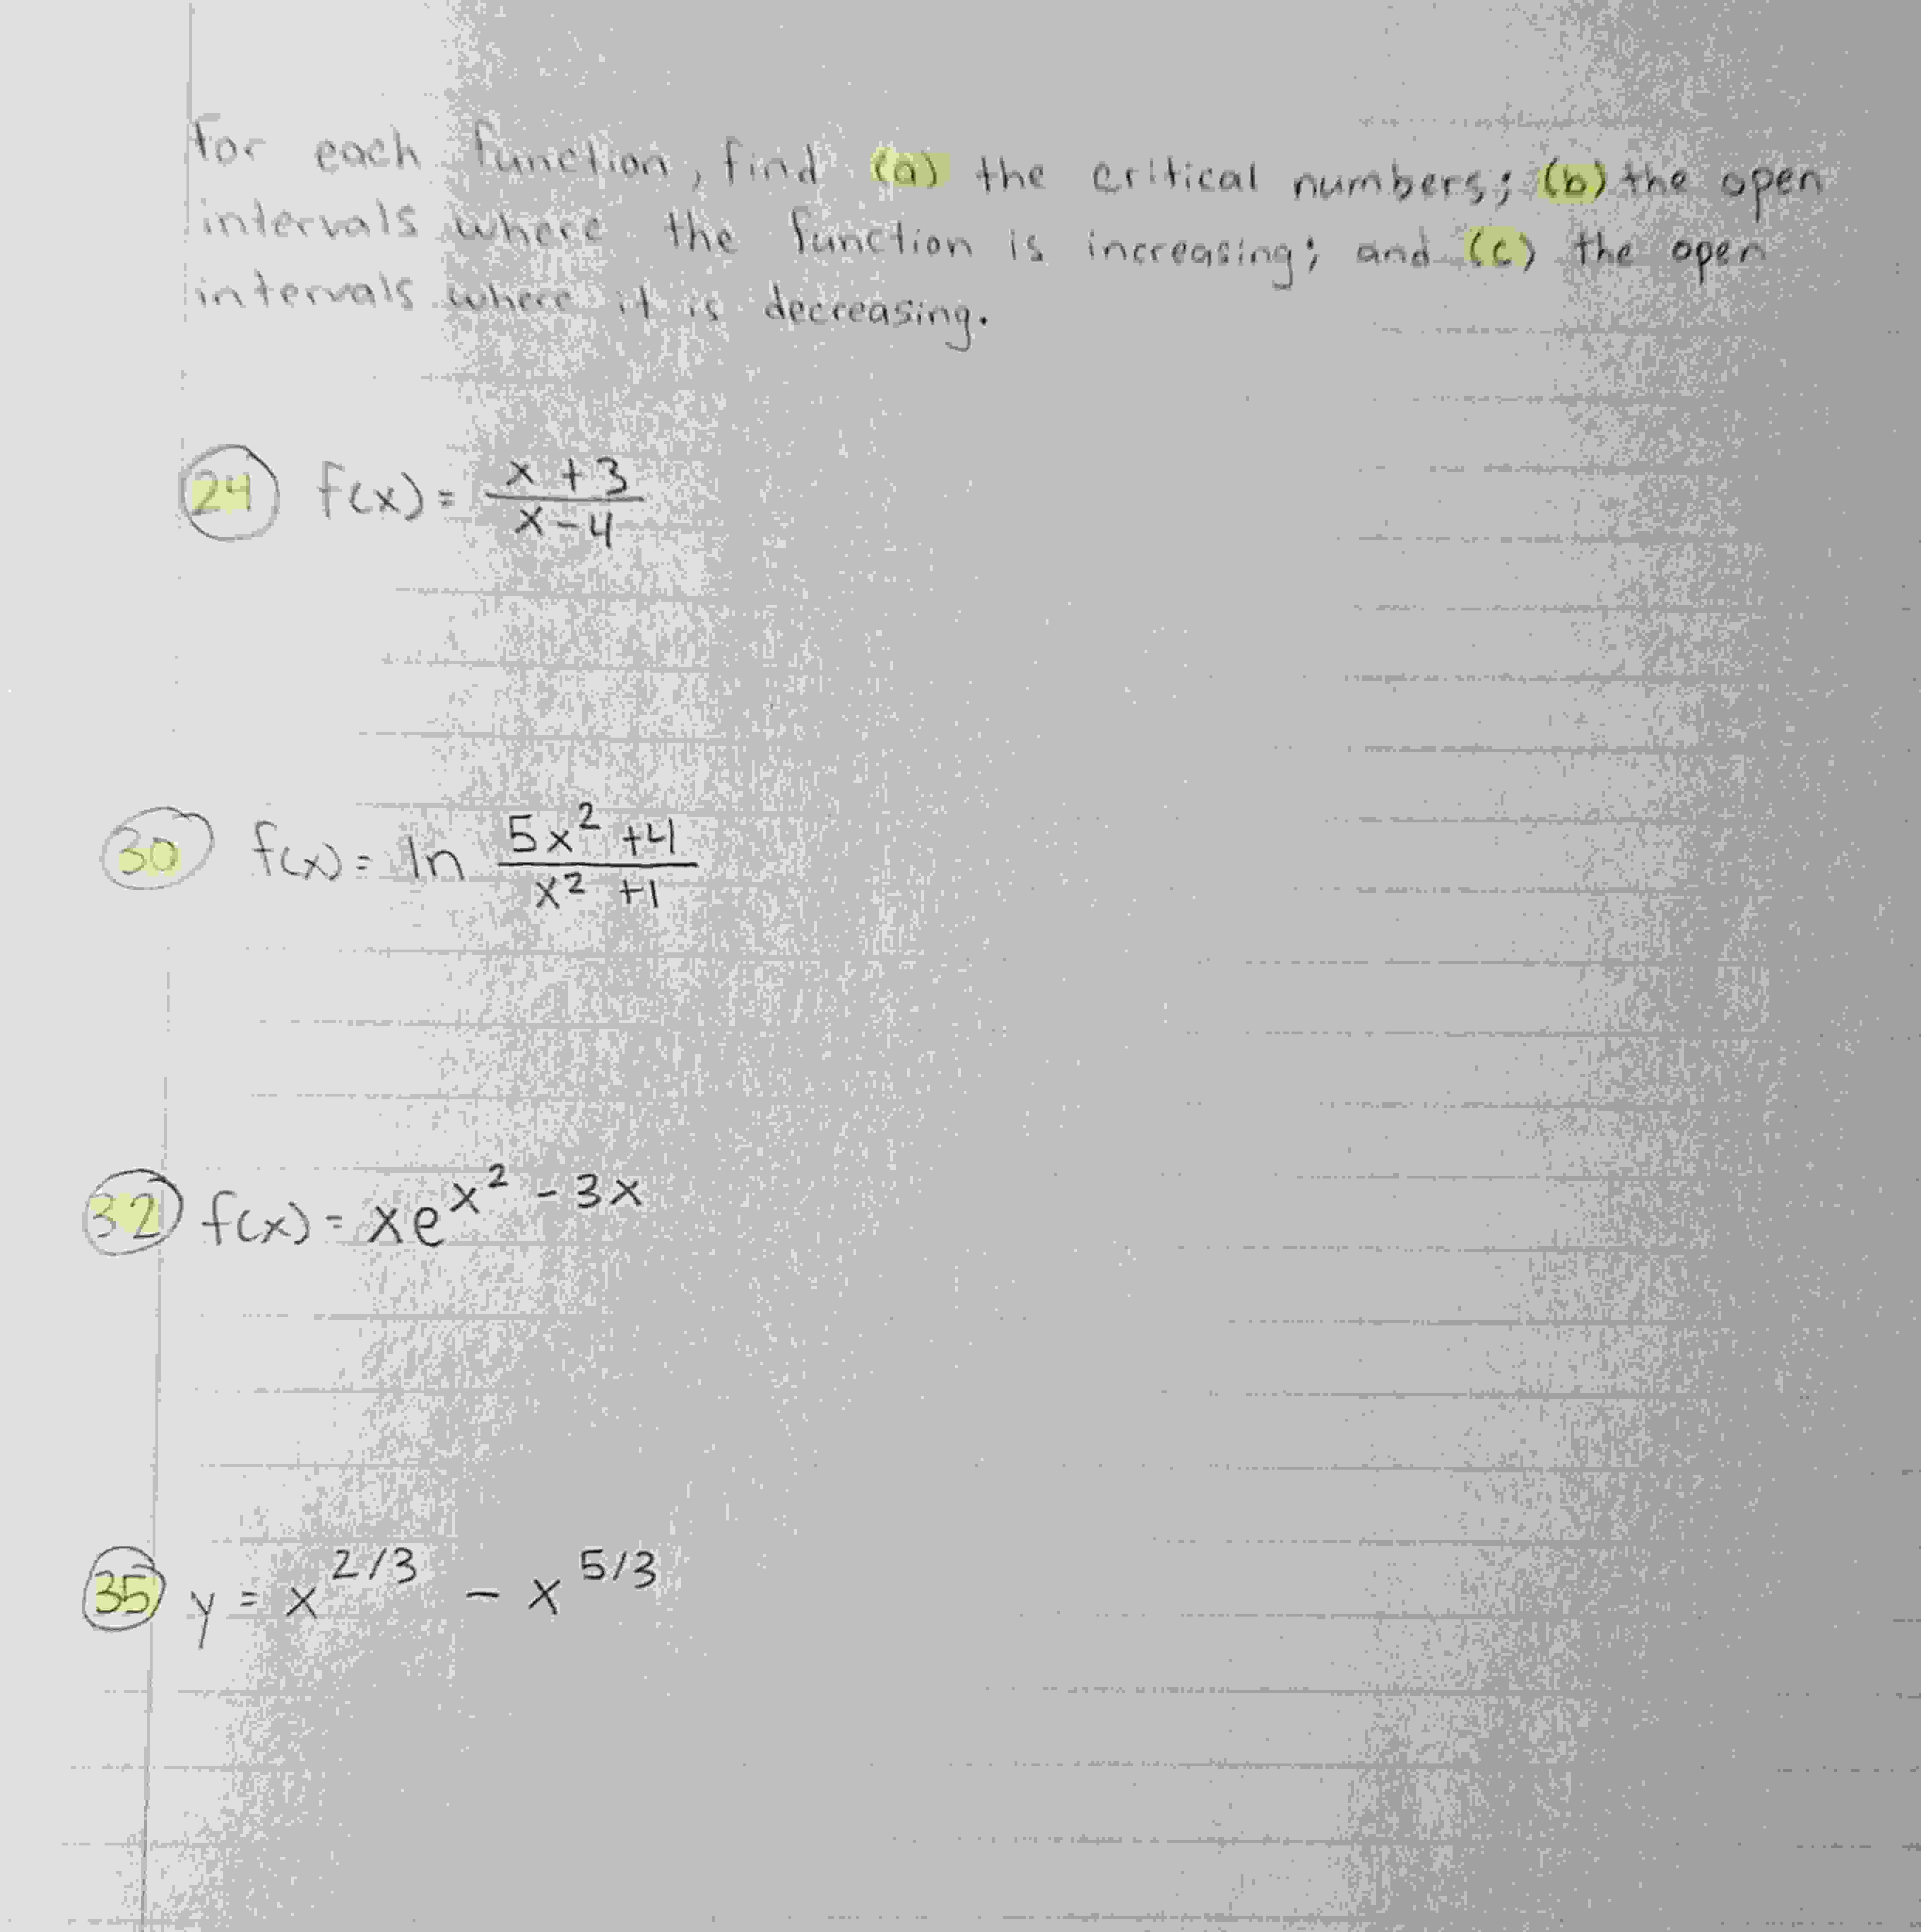 For each function, find (a) the critical numbers; (b) the open
intervals where the function is increasing; and (c) the open
intervals where it is decreasing.
24 f(x) = x + 3 / x - 4
30 f(x) = ln 5x² + 4 / x² + 1
32 f(x) = xe^x² - 3x
35 y = x^2/3 - x^5/3